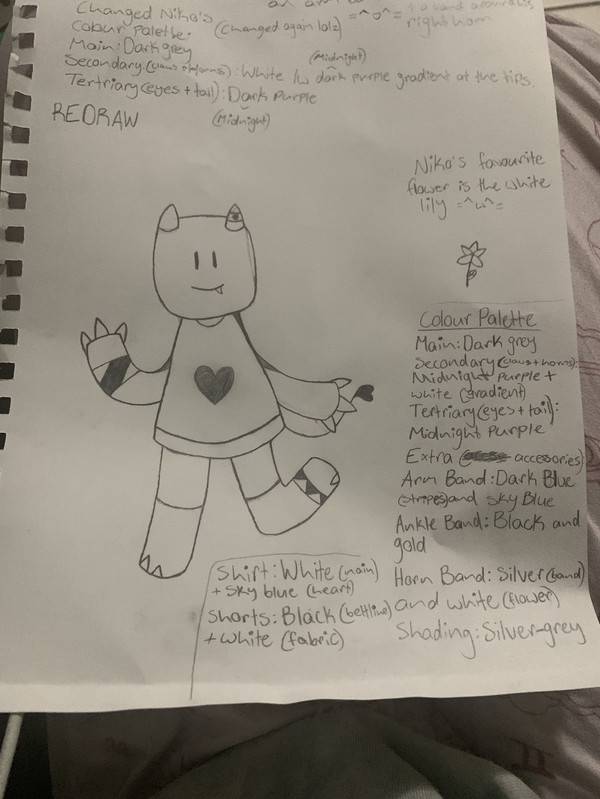 Changed Niko's
Colour Palette. (Changed again lolz) =^o^=
right horn
Main: Dark grey
(Midnight)
Secondary (claws + horns): White w dark purple gradient at the tips.
Tertriary (eyes + tail): Dark Purple
(Midnight)
REDRAW
Niko's favourite
flower is the white
lily =^u^=
Colour Palette
Main: Dark grey
Secondary (claws + horns):
Midnight Purple +
white (gradient)
Tertriary (eyes + tail):
Midnight Purple
Extra (accessories)
Arm Band: Dark Blue
(stripes) and Sky Blue
Ankle Band: Black and
gold
Horn Band: Silver (band)
and white (flower)
Shading: Silver-grey
Shirt: White (main)
+ Sky blue (heart)
Shorts: Black (beltline)
+ white (fabric)